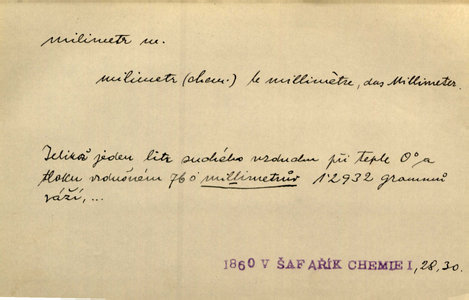 milimetr m.
milimetr (chem.) le millimètre, das Millimeter.
Jelikož jeden litr suchého vzduchu při teple 0° a
tlaku vzdušném 760 millimetrův 1·2932 grammů
váží,...
1860 V ŠAFAŘÍK CHEMIE I, 28, 30.